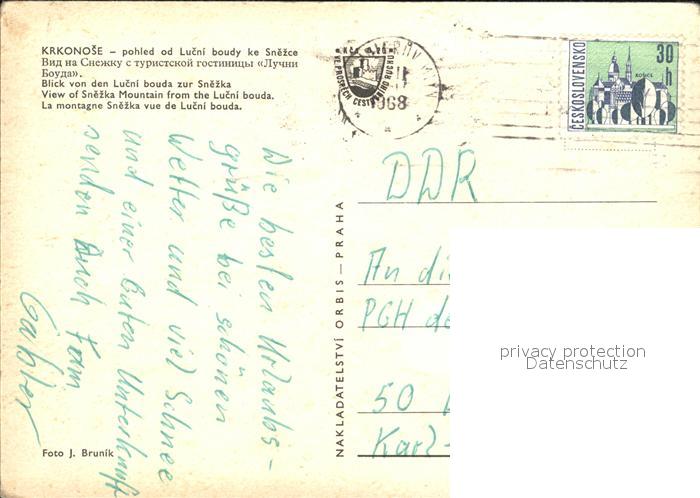 KRKONOŠE – pohled od Luční boudy ke Sněžce
Вид на Снежку с туристской гостиницы «Лучни
Боуда».
Blick von den Luční bouda zur Sněžka
View of Sněžka Mountain from the Luční bouda.
La montagne Sněžka vue de Luční bouda.
Die besten Urlaubs-
grüße bei schönen
Wetter und viel Schnee
und einer guten Unterkunft
senden Euch Fam
Gäbler
Foto J. Bruník
NAKLADATELSTVÍ ORBIS — PRAHA
1968
ČESKOSLOVENSKO
30
h
KOŠICE
DDR
An di
PGH de
50
Karl-
privacy protection
Datenschutz